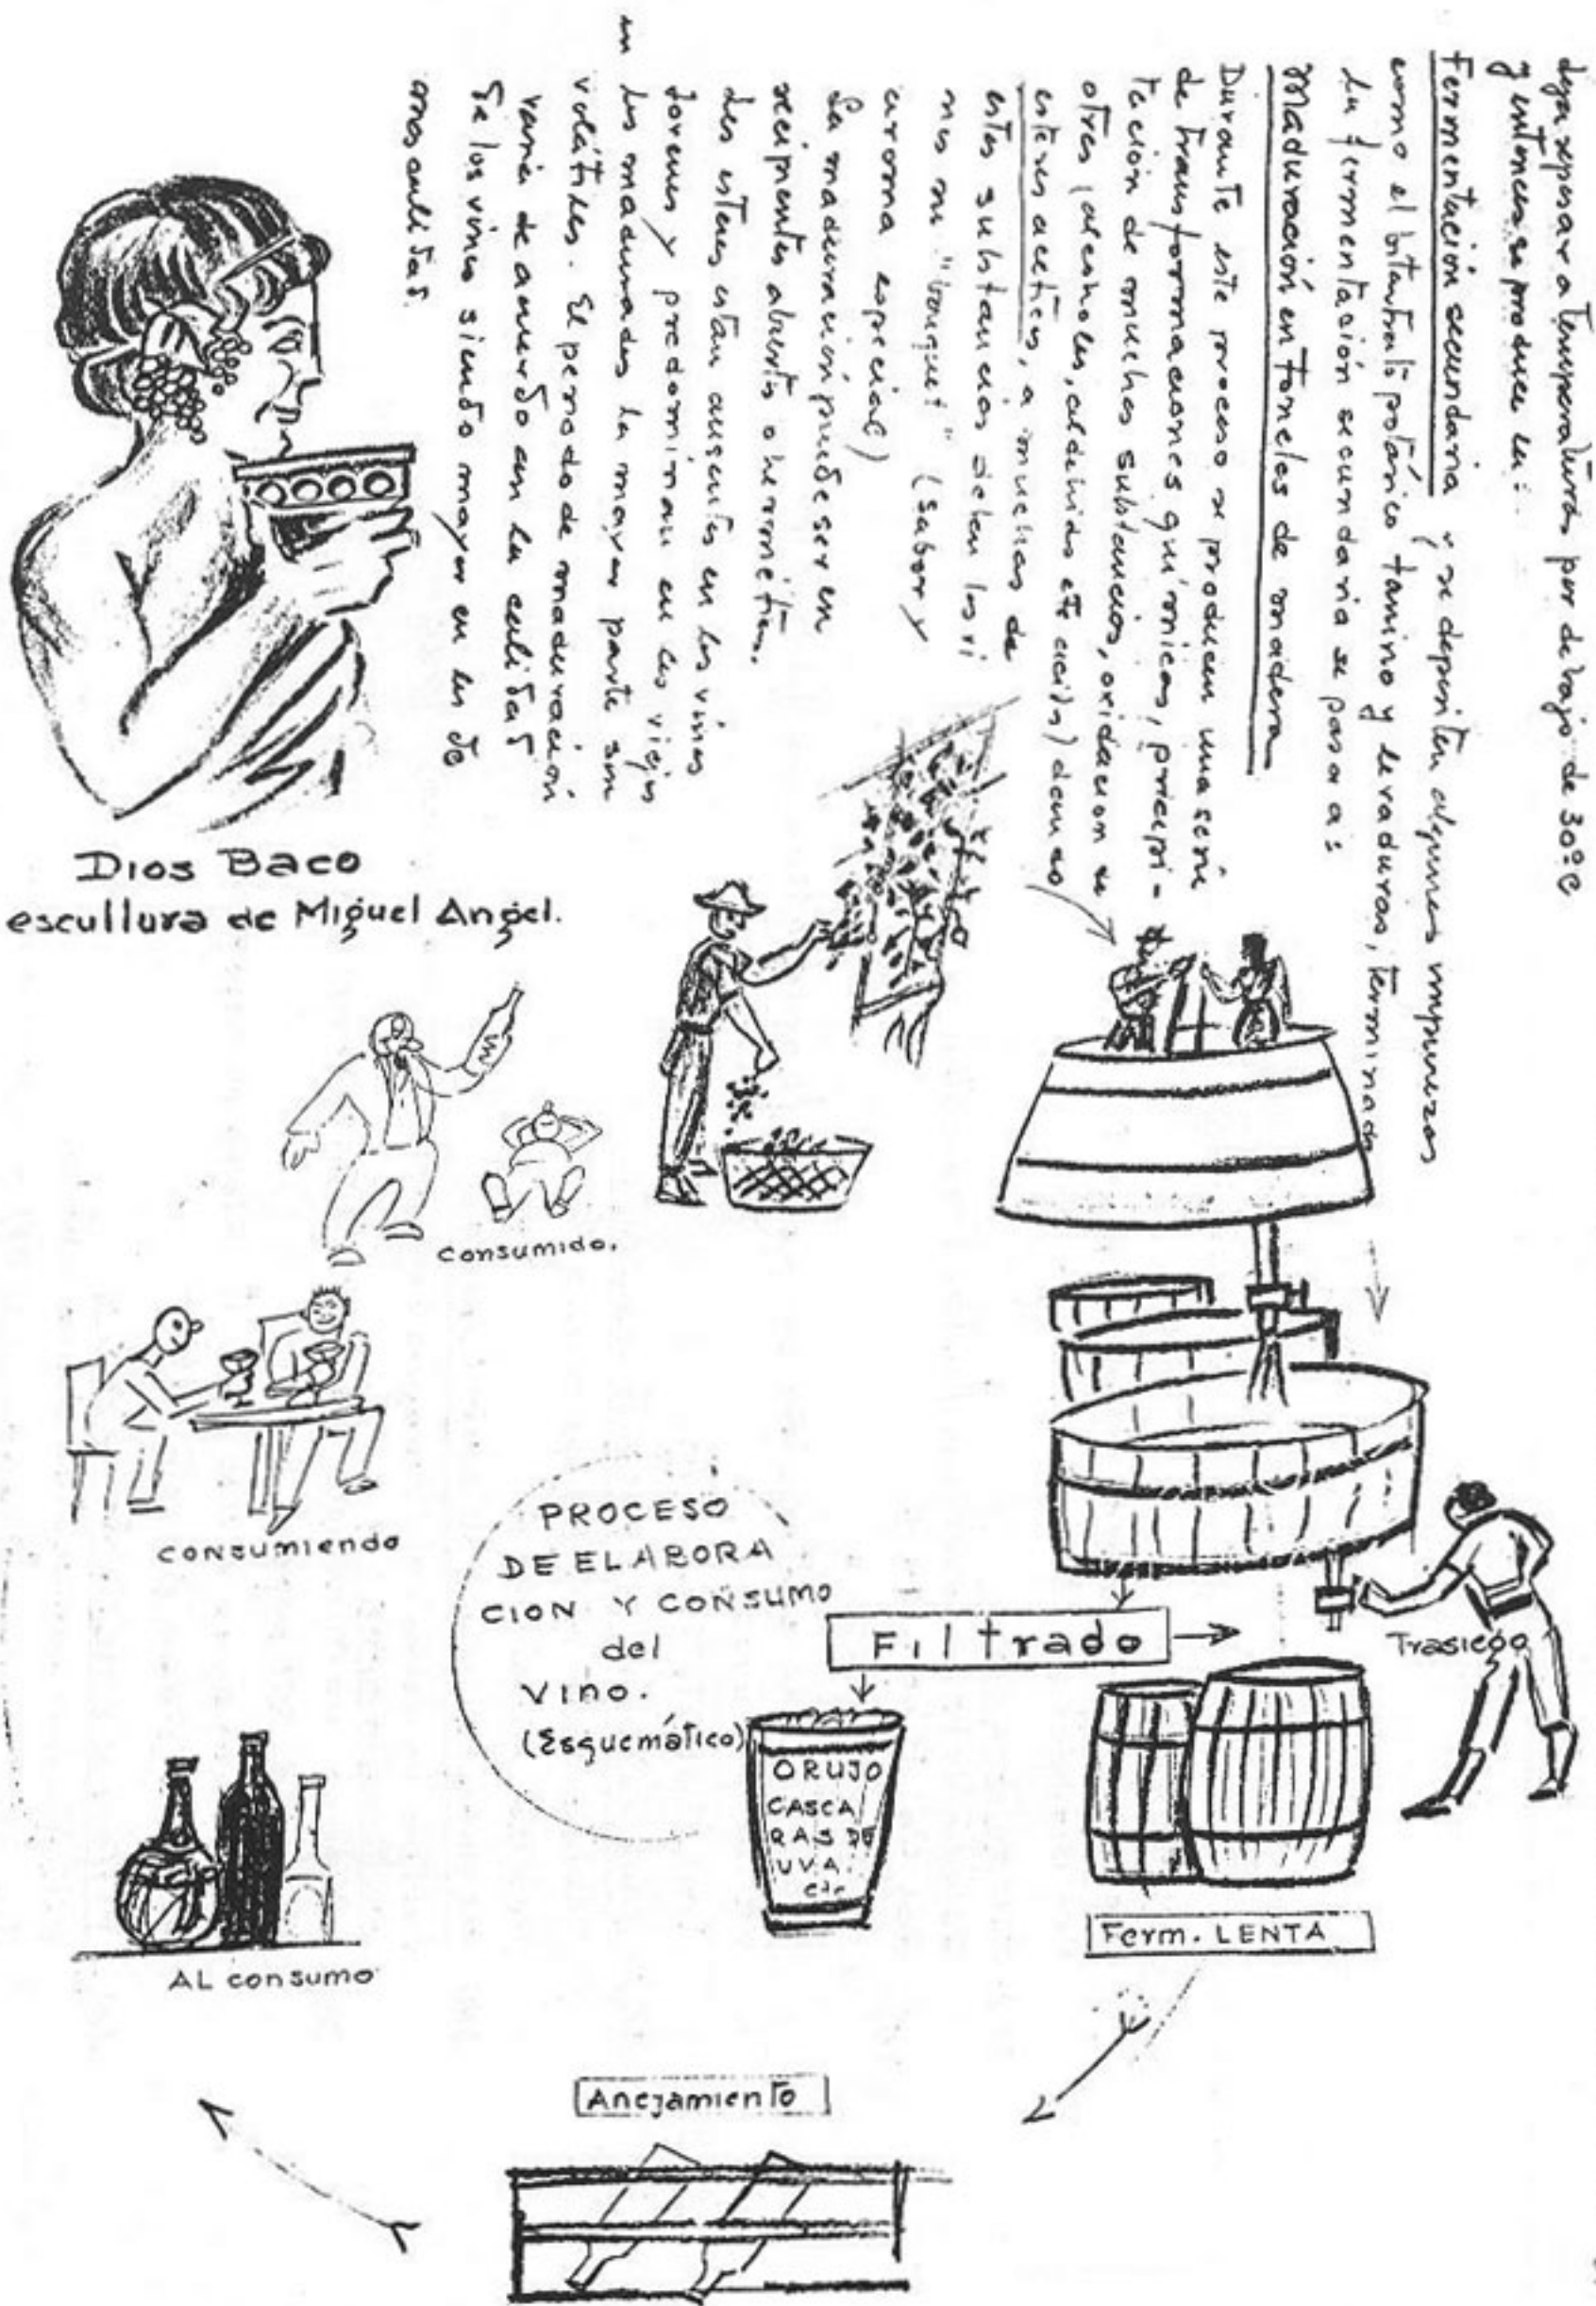 deja reposar a temperaturas por debajo de 30°C
y entonces se produce la:
Fermentación secundaria y se depositan algunas impurezas
como el bitartrato potásico tanino y levaduras, terminado
la fermentación secundaria se pasa a:
Maduración en toneles de madera
Durante este proceso se producen una serie
de transformaciones químicas, precipi-
tación de muchas substancias, oxidación de
otras (alcoholes, aldehidos etc acids) dando
esteres acético, a muchas de
estas substancias deben los vi
nos su "bouquet" (sabor y
aroma especial)
La maduración puede ser en
recipientes abiertos o herméticos.
Los esteres estan ausentes en los vinos
jovenes y predominan en los viejos
en los madurados la mayor parte son
volátiles. El periodo de maduración
varia de acuerdo an la calidad
de los vinos siendo mayor en los de
mas calidad.
Dios Baco
escullura de Miguel Angel.
consumido.
consumiendo
AL consumo
PROCESO
DE ELABORA
CION Y CONSUMO
del
Vino.
(Esquemático)
Filtrado
Trasiego
ORUJO
CASCA
RAS DE
UVA.
etc
Ferm. LENTA
Anejamiento